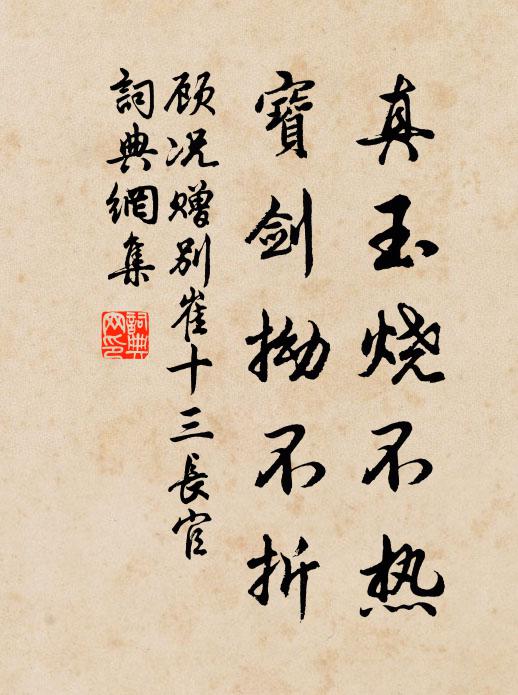 真玉烧不热
寶剑拗不折
顾况赠别崔十三長官
詞典網集
詞典网印